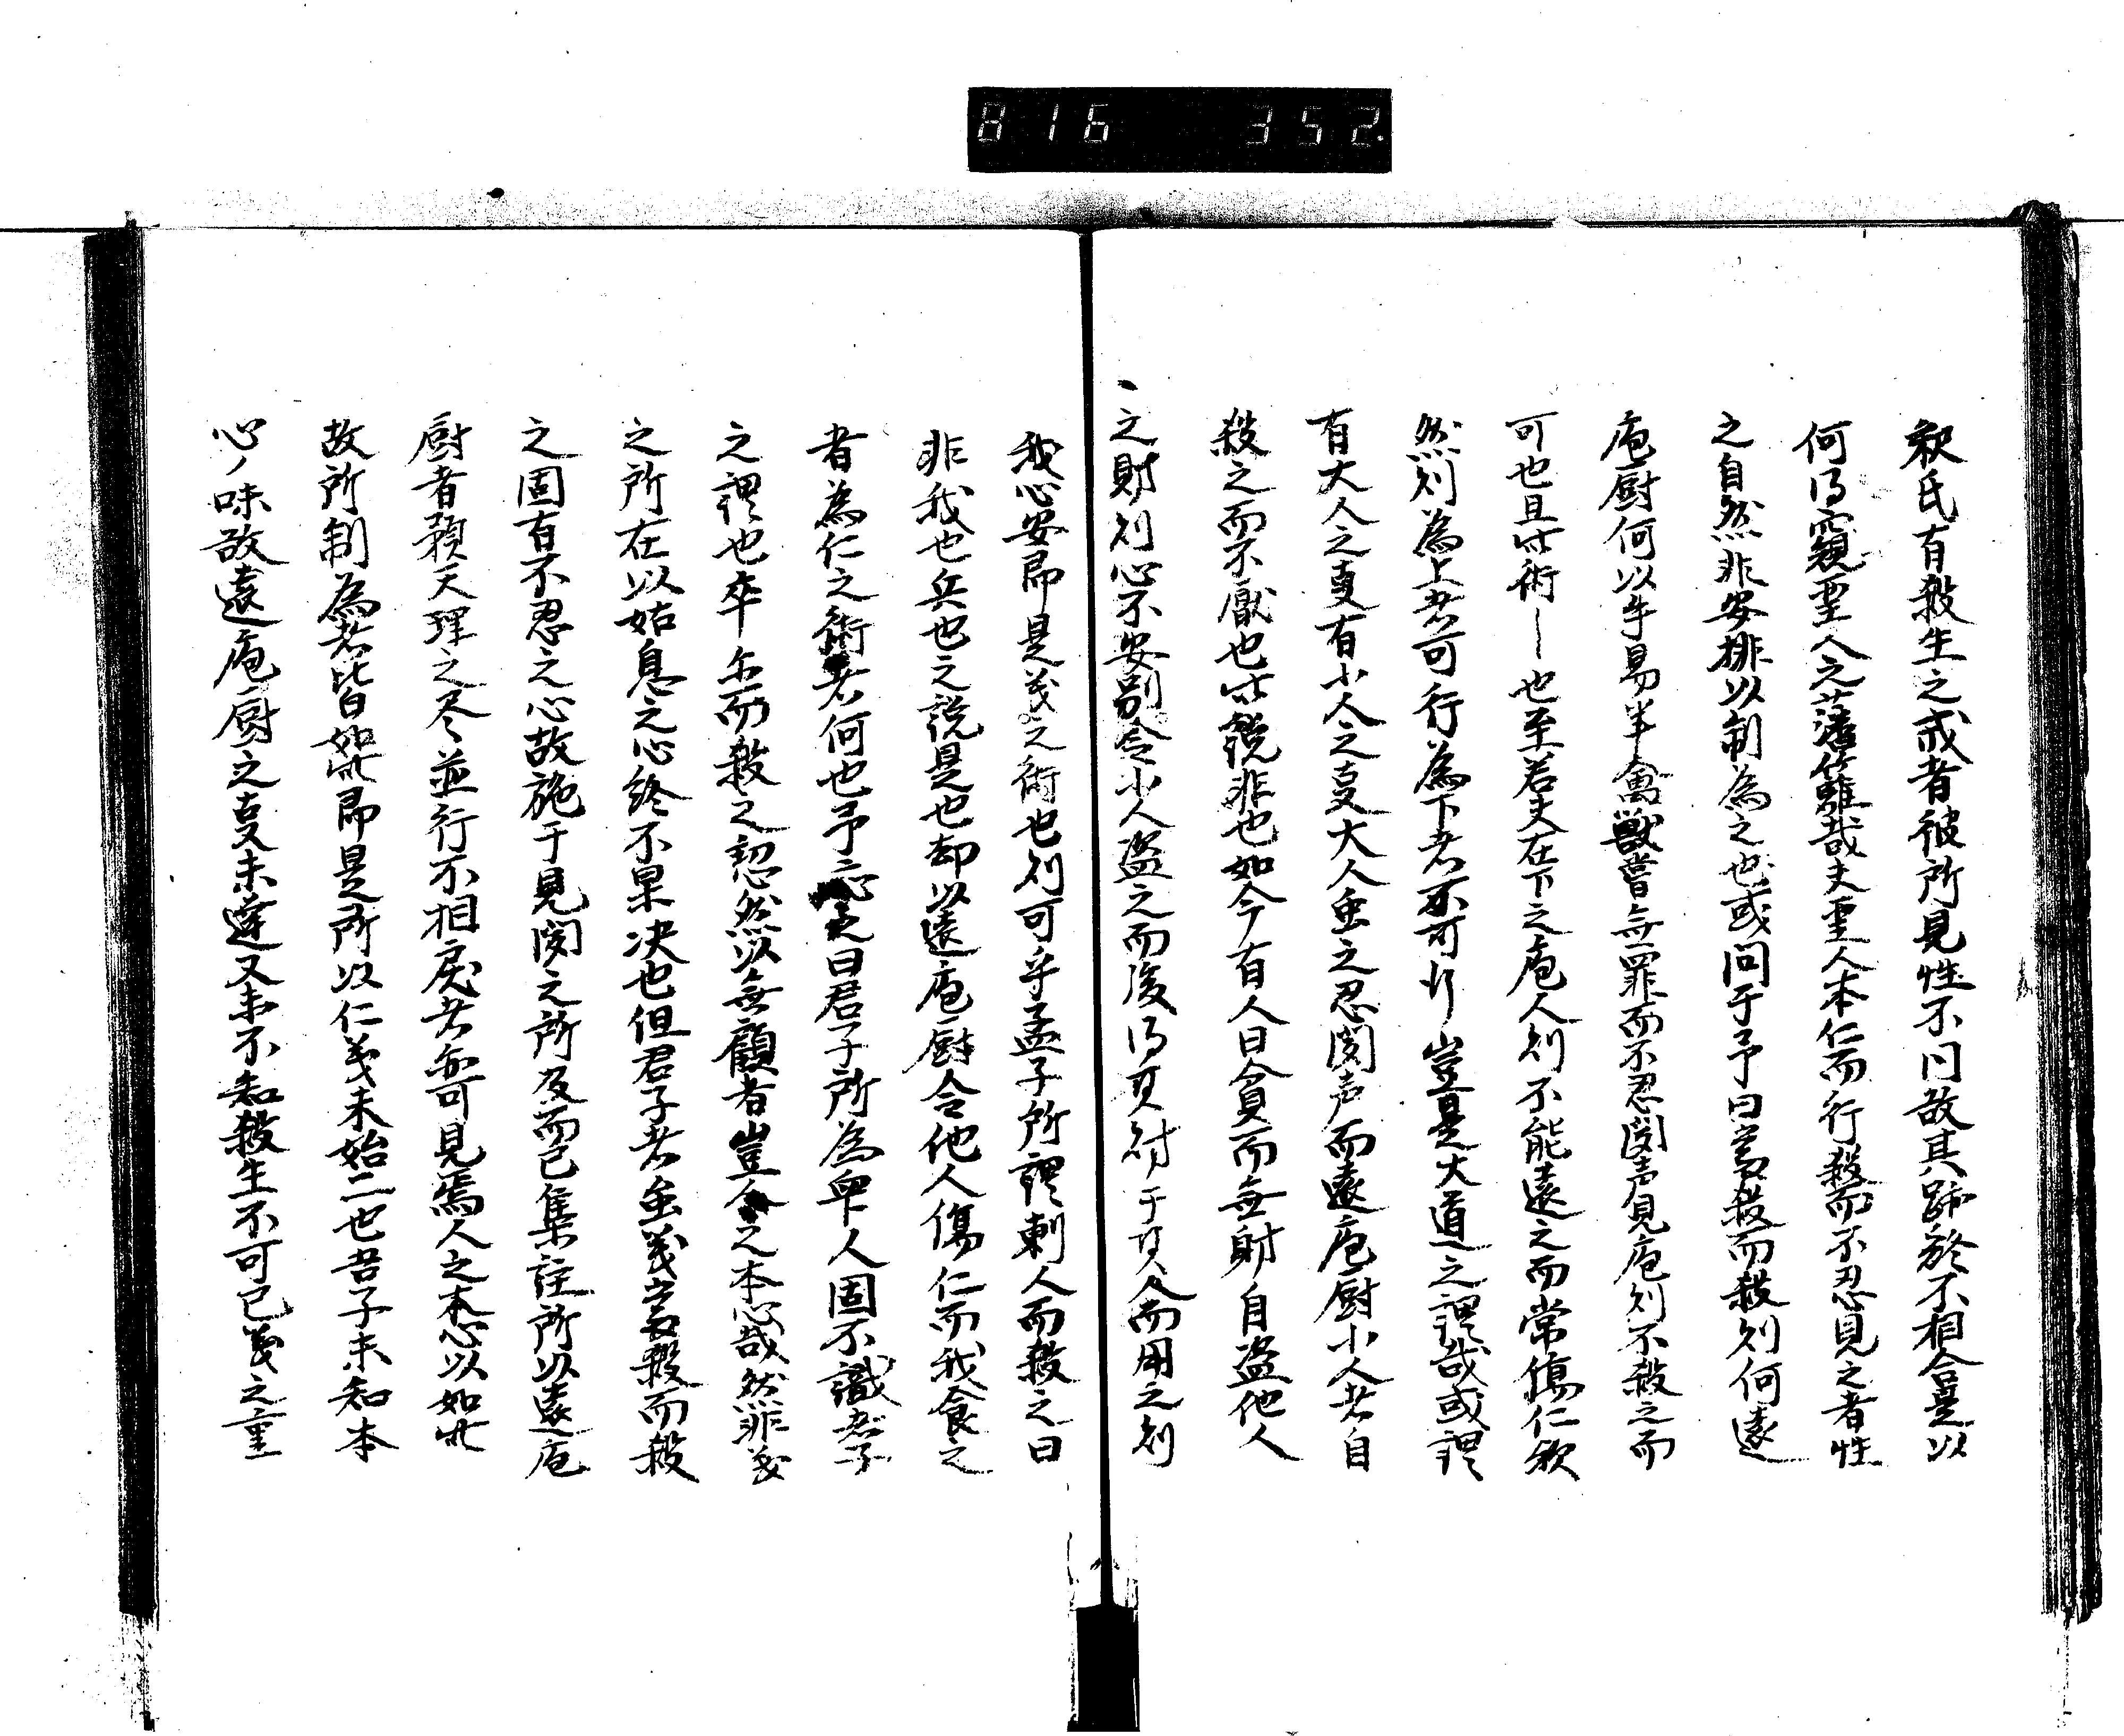 816 352.
釈氏有殺生之戒者彼所見性不同故其跡終不相合是以
何得窺聖人之藩籬哉夫聖人本仁而行殺而不忍見之者性
之自然非安排以制為之也或问于予曰當殺而殺則何遠
庖厨何以牛易羊禽獣嘗無罪而不忍聞声見庖則不殺之而
可也且此術〡也至若夫在下之庖人則不能遠之而常傷仁欤
然則為上者可行為下者不可行豈是大道之謂哉或謂
有大人之事有小人之事大人虫之忍聞声而遠庖厨小人者自
殺之而不厭也此説非也如今有人曰貧而無財自盗他人
之財則心不安別令小人盗之而後得其財于其人而用之則
我心安即是義之術也則可乎孟子所謂刺人而殺之曰
非我也兵也之説是也却以遠庖厨令他人傷仁而我食之
者為仁之術者何也予曰君子所為卑人固不識君子
之謂也卒尓而殺之恝然以無顧者豈人之本心哉然非義
之所在以姑息之心終不果决也但君子者虫義當殺而殺
之固有不忍之心故施于見聞之所及而已集註所以遠庖
厨者頼天理之尽並行不相戻者亦可見焉人之本心以如此
故所制為者皆如此即是所以仁義未始二也吾子未知本
心ノ味故遠庖厨之事未達又未不知殺生不可已義之重